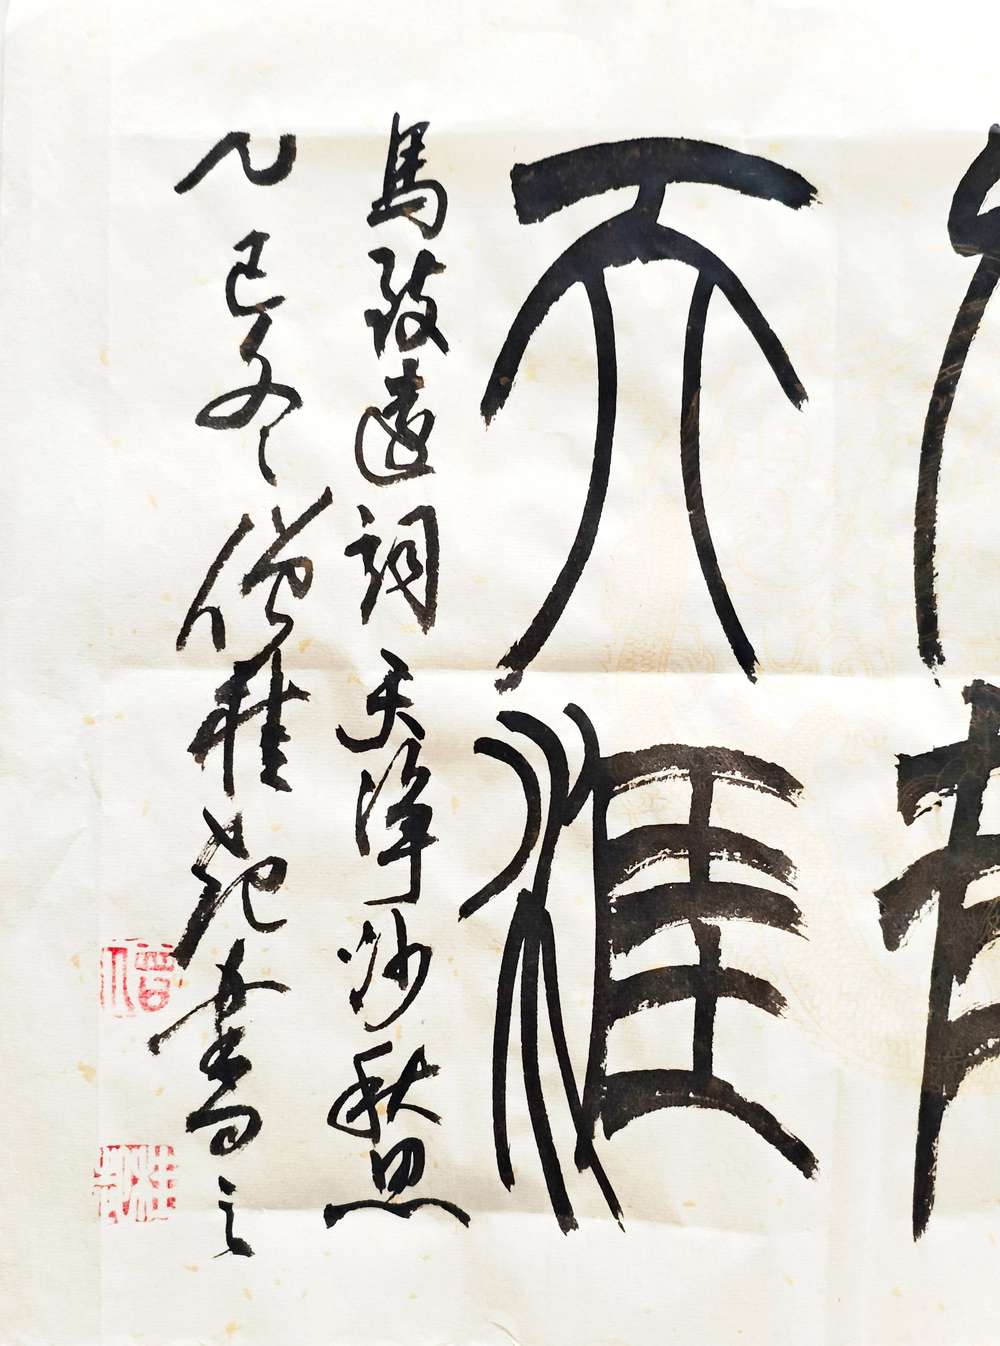 天涯
馬致遠詞天淨沙秋思
乙巳冬僧書之